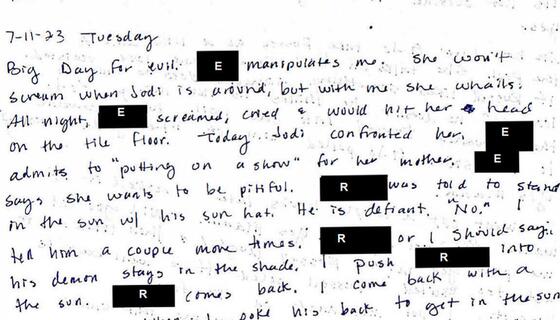 7-11-23 Tuesday
Big Day for evil. E manipulates me. She won't
scream when Jodi is around, but with me she whails.
All night, E screamed, cried & would hit her head
on the tile floor. Today Jodi confronted her. E
admits to "putting on a show" for her mother. E
says she wants to be pitiful. R was told to stand
in the sun w/ his sun hat. He is defiant. "No." I
tell him a couple more times. R or I should say,
his demon stays in the shade. I push R into
the sun. R comes back. I come back with a
poke his back to get in the sun